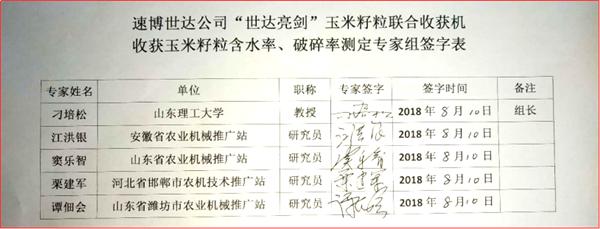 速博世达公司“世达亮剑”玉米籽粒联合收获机
收获玉米籽粒含水率、破碎率测定专家组签字表
专家姓名 单位 职称 专家签字 签字时间 备注
刁培松 山东理工大学 教授 刁培松 2018年8月10日 组长
江洪银 安徽省农业机械推广站 研究员 江洪银 2018年8月10日
窦乐智 山东省农业机械推广站 研究员 窦乐智 2018年8月10日
栗建军 河北省邯郸市农机技术推广站 研究员 栗建军 2018年8月10日
谭佃会 山东省潍坊市农业机械推广站 研究员 谭佃会 2018年8月10日